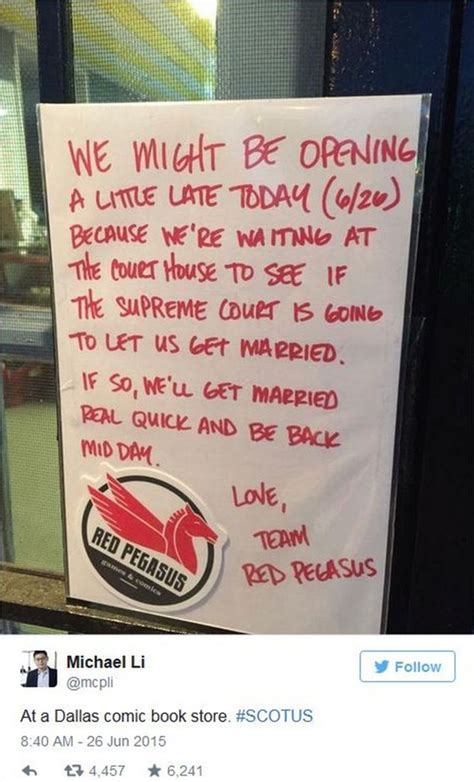 WE MIGHT BE OPENING
A LITTLE LATE TODAY (6/26)
BECAUSE WE'RE WAITING AT
THE COURT HOUSE TO SEE IF
THE SUPREME COURT IS GOING
TO LET US GET MARRIED.
IF SO, WE'LL GET MARRIED
REAL QUICK AND BE BACK
MID DAY.
LOVE,
TEAM
RED PEGASUS
RED PEGASUS
games & comics
Michael Li
@mcpli
Follow
At a Dallas comic book store. #SCOTUS
8:40 AM - 26 Jun 2015
4,457 6,241